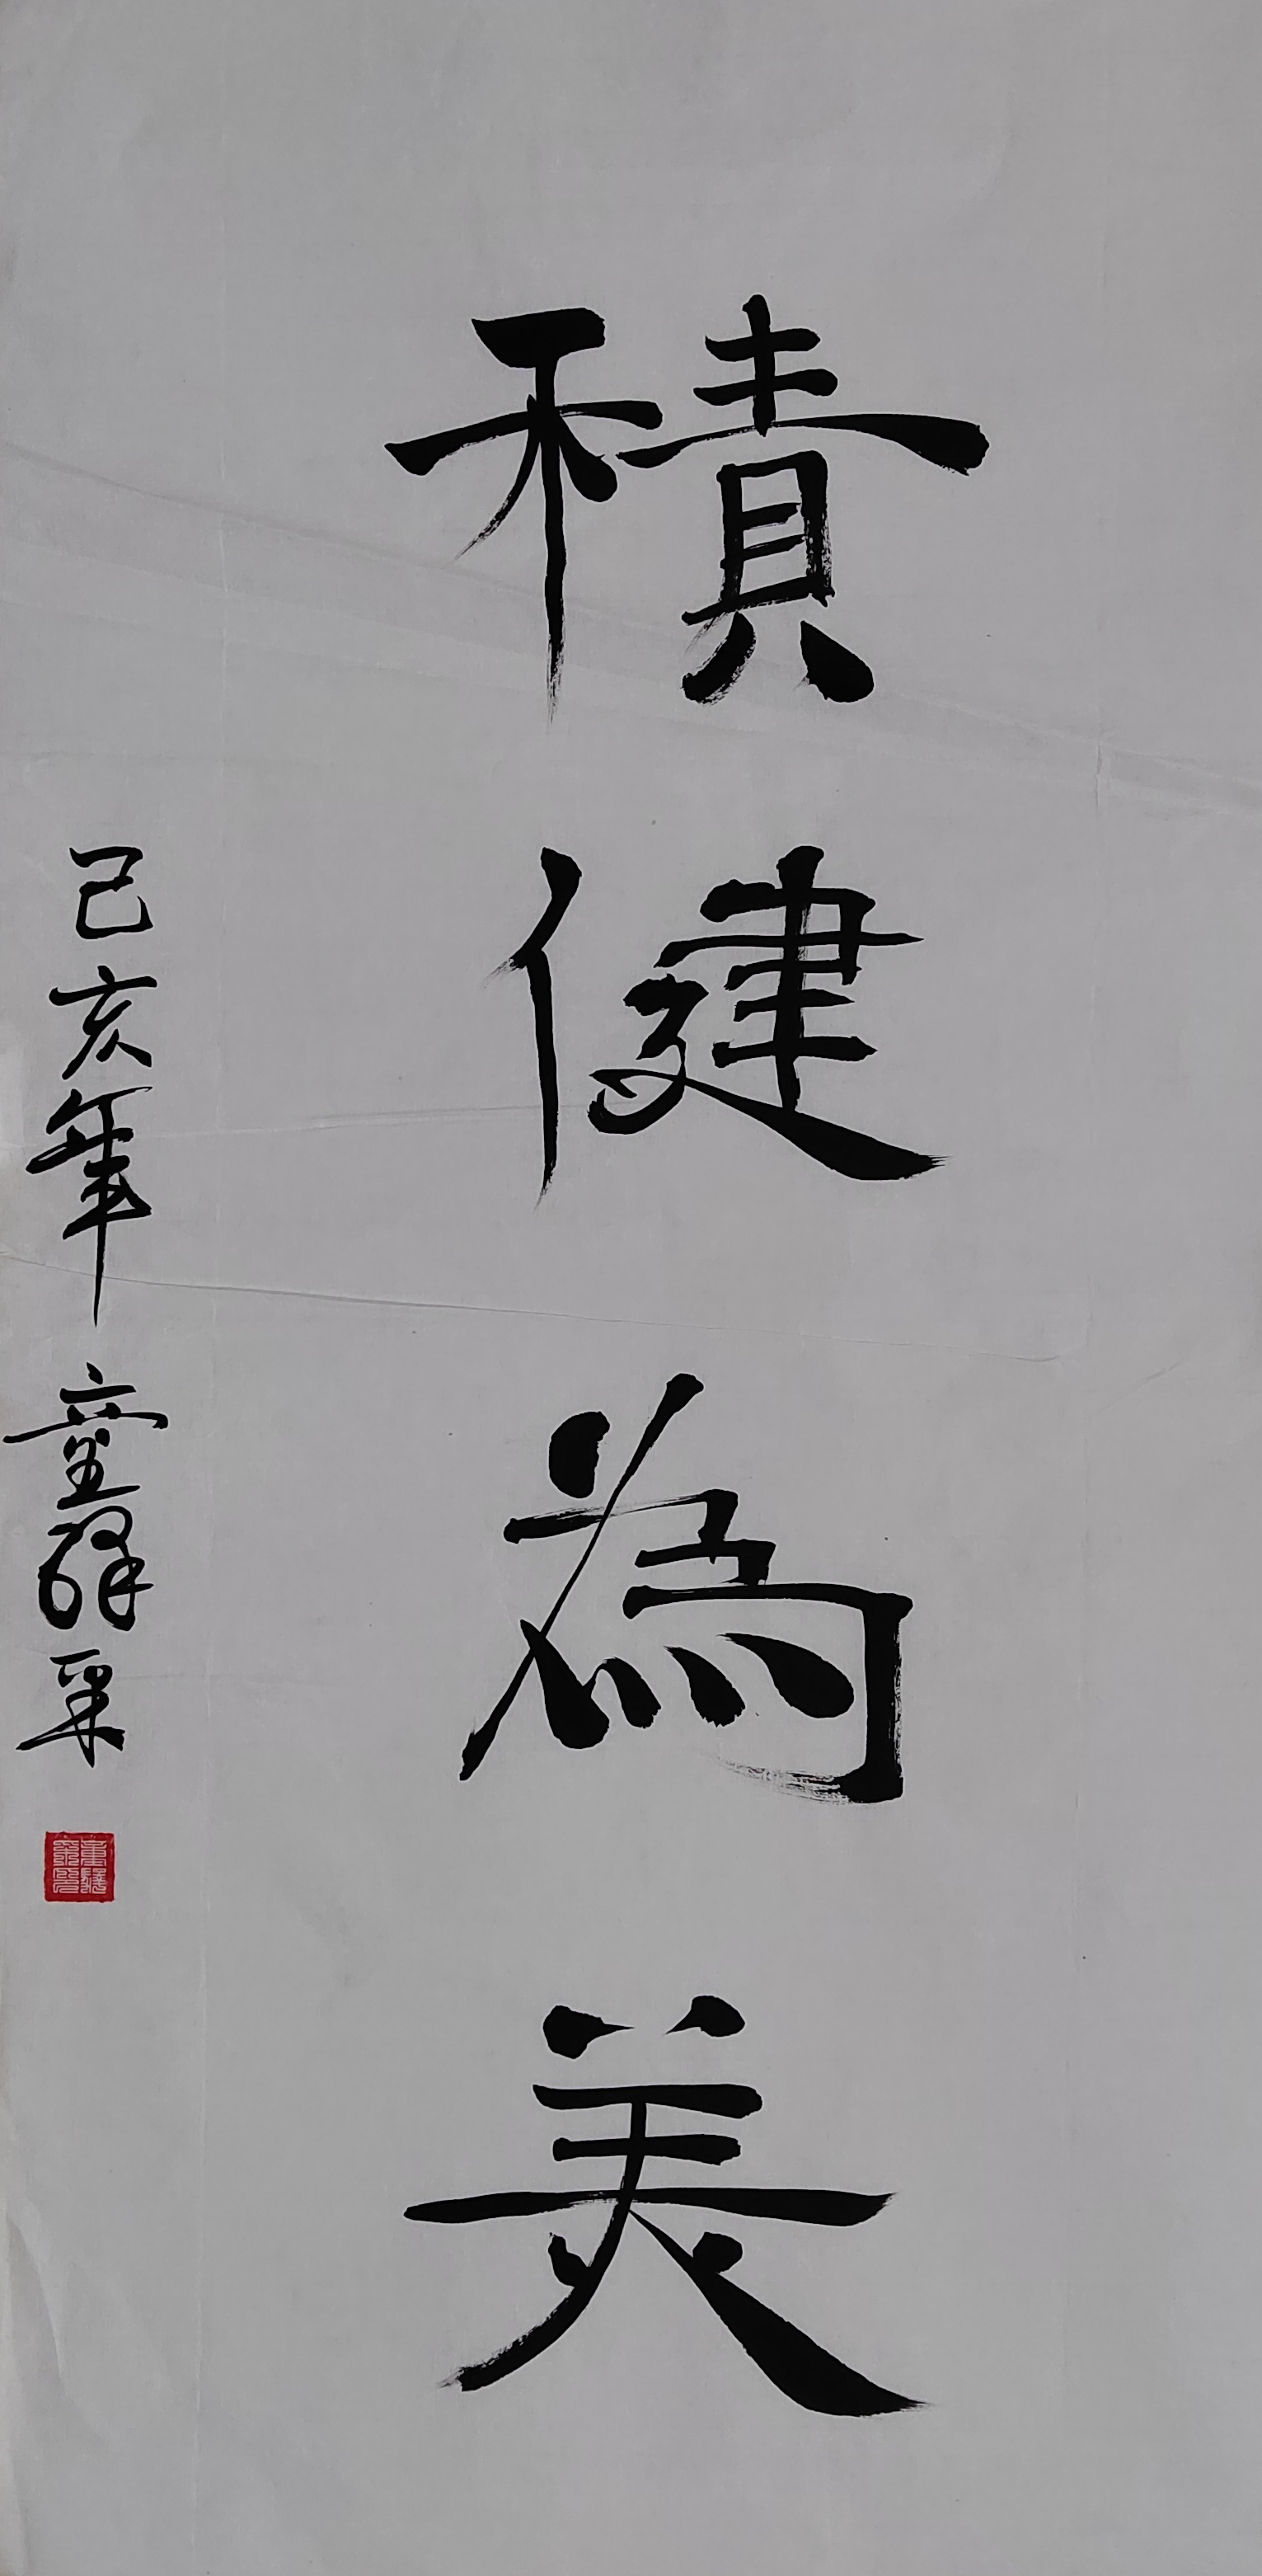 積健為美
己亥年 童驛采